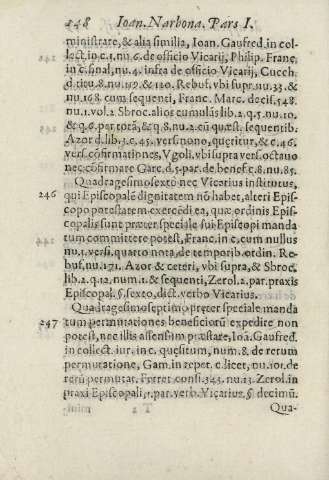 248 Ioan. Narbona. Pars I.
ministrare, & alia similia, Ioan. Gaufred. in col-
lect. in c. 1. nu. 6. de officio Vicarij, Philip. Franc.
in c. final, nu. 4. infra de officio Vicarij, Cucch.
d. titu. 8. nu. 119. & 120. Rebuf. vbi supr. nu. 33. &
nu. 168. cum sequenci, Franc. Marc. decis. 548.
nu. 1. vol. 2. Sbroc. alios cumulãs lib. 2. q. 5. nu. 10.
& q. 6. per totã, & q. 8. nu. 2. cũ quæst. sequentib.
Azor d. lib. 3. c. 45. vers. nono, quęritur, & c. 46.
vers. cõfirmationes, Vgoli. vbi supra vers. octauo
nec cõfirmare Garc. d. 5. par. de benef. c. 8. nu. 85.
Quadragesimosexto nec Vicarius institutus,
246 qui Episcopalẽ dignitatem nõ habet, alteri Epis-
copo potestatem exercẽdi ea, quæ ordinis Epis-
copalis sunt præter speciale sui Episcopi manda
tum committere potest, Franc. in c. cum nullus
nu. 1. versi. quarto nota, de temporib. ordin. Re-
buf. nu. 171. Azor & ceteri, vbi supra, & Sbroc.
lib. 2. q. 12. num. 1. & sequenci, Zerol. 2. par. praxis
Episcopal. §. sexto, dict. verbo Vicarius.
Quadragesimoseptimo pręter speciale manda
247 tum permutationes beneficiorũ expedire non
potest, nec illis assensum præstare, Ioã. Gaufred.
in collect. iur. in c. quęsitum, num. 8. de rerum
permutatione, Gam. in repet. c. licet, nu. 101. de
rerũ permutat. Ferret. consi. 343. nu. 13. Zerol. in
praxi Episcopali, 1. par. verb. Vicarius. §. decimũ.
Qua-